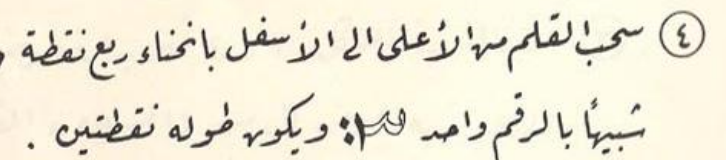 ٤ سحب القلم من الأعلى الى الأسفل بانحناء ربع نقطة و
شبيهًا بالرقم واحد ويكون طوله نقطتين .